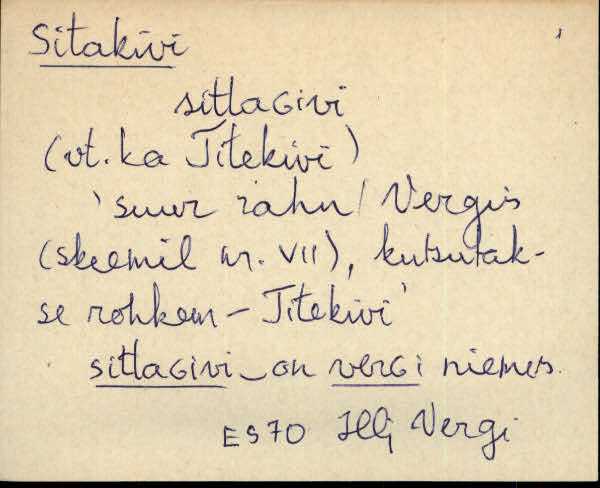 Sitakivi
sitlaGivi
(vt. ka Titekivi)
'suur rahn Vergis
(skeemil nr. VII), kutsutak-
se rohkem – Titekivi'
sitlaGivi on verGi niemes.
ES70 HLj Vergi